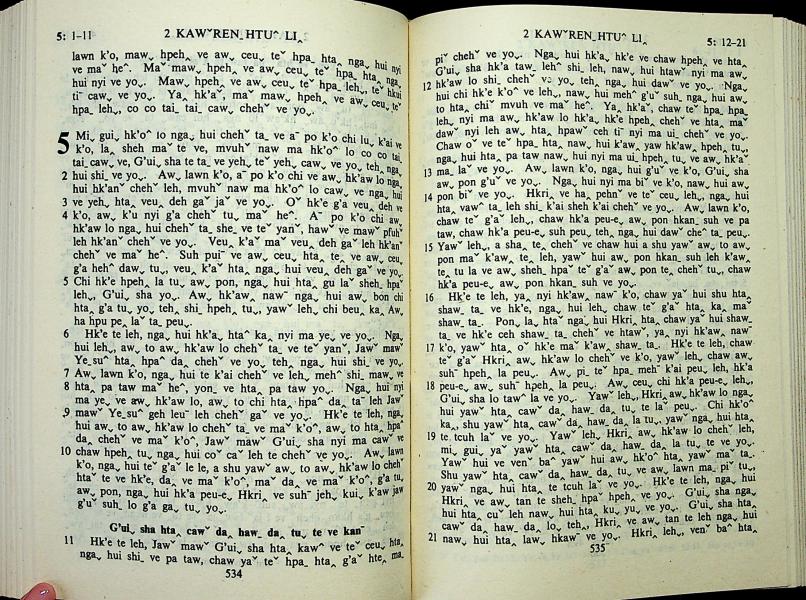 5: 1–11 2 KAWˇREN_HTUˆ LI‸
lawn k'o, maw˯ hpeh‸ ve aw˯ ceu˯ teˇ hpa_ hta‸ nga˯ hui nyi
ve maˇ heˆ. Maˇ maw˯ hpeh‸ ve aw˯ ceu˯ teˇ hpa_ hta‸ nga˯
hui nyi ve yo˯. Maw˯ hpeh‸ ve aw˯ ceu˯ teˇ hpa_ leh˯, teˇ hkui
tiˇ caw˯ ve yo˯. Ya‸ hk'aˇ, maˇ maw˯ hpeh‸ ve aw˯ ceu˯ teˇ
hpa_ leh˯, co co tai_ tai_ caw˯ chehˇ ve yo˯.
5 Mi_ gui˯ hk'oˆ lo nga˯ hui chehˇ ta_ ve aˉ po k'o chi lu˯ k'ai ve
k'o, la‸ sheh maˇ te ve, mvuhˇ naw ma hk'oˆ lo co co tai_
tai_ caw˯ ve, G'ui˯ sha te ta_ ve yeh˯ teˇ yeh˯ caw˯ ve yo˯ teh˯ nga˯
2 hui shi‸ ve yo˯. Aw˯ lawn k'o, aˉ po k'o chi ve aw˯ hk'aw lo nga˯
hui hk'anˇ chehˇ leh˯ mvuhˇ naw ma hk'oˆ lo caw˯ ve nga˯ hui
3 ve yeh˯ hta‸ veu˯ deh gaˇ jaˇ ve yo˯. Oˇ hk'e g'a veu˯ deh ve
4 k'o, aw˯ k'u nyi g'a chehˇ tu˯ maˇ heˆ. Aˉ po k'o chi aw˯
hk'aw lo nga˯ hui chehˇ ta_ she_ ve teˇ yanˇ, hawˇ ve mawˇ pfuhˆ
leh hk'anˇ chehˇ ve yo˯. Veu˯ k'aˇ maˇ veu˯ deh gaˇ leh hk'anˇ
chehˇ ve maˇ heˆ. Suh puiˉ ve aw˯ ceu˯ hta‸ te˯ ve aw˯ ceu˯
g'a hehˆ dawˇ tu˯, veu˯ k'aˇ hta‸ nga˯ hui veu˯ deh gaˇ ve yo˯.
5 Chi hk'e hpeh‸ la tu˯ aw˯ pon˯ nga˯ hui hta‸ gu laˇ sheh_ hpaˇ
leh˯, G'ui˯ sha yo˯. Aw˯ hk'aw˯ nawˉ nga˯ hui aw˯ bon chi
hta‸ g'a tu˯ yo˯ teh˯ shi_ hpeh‸ tu˯, yawˇ leh˯ chi beu˯ ka‸ Aw˯
ha hpu pe˯ laˇ ta_ peu˯.
6 Hk'e te leh, nga˯ hui hk'a‸ htaˆ ka‸ nyi ma ye˯ ve yo˯. Nga˯
hui leh˯, aw˯ to aw˯ hk'aw lo chehˇ ta_ ve teˇ yanˇ, Jawˇ mawˇ
Ye_suˆ hta‸ hpaˆ da‸ chehˇ ve yo˯ teh˯ nga˯ hui shi‸ ve yo˯.
7 Aw˯ lawn k'o, nga˯ hui te k'ai chehˇ ve leh˯, mehˆ shi_ maw˯ ve
8 hta‸ pa taw maˇ heˆ, yon_ ve hta‸ pa taw yo˯. Nga˯ hui nyi
ma ye˯ ve aw˯ hk'aw lo, aw˯ to chi hta‸ hpaˆ da‸ taˉ leh Jawˇ
9 mawˇ Ye_suˆ geh leuˉ leh chehˇ gaˇ ve yo˯. Hk'e te leh, nga˯
hui aw˯ to aw˯ hk'aw lo chehˇ ta_ ve maˇ k'oˆ, aw˯ to hta‸ hpaˆ
da‸ chehˇ ve maˇ k'oˆ, Jawˇ mawˇ G'ui˯ sha nyi ma cawˇ ve
10 chaw hpeh‸ tu˯ nga˯ hui coˇ caˇ leh te chehˇ ve yo˯. Aw˯ lawn
k'o, nga˯ hui teˇ g'aˇ le le, a shu yawˇ aw˯ to aw˯ hk'aw lo chehˇ
htaˇ te ve hk'e, da‸ ve maˇ k'oˆ, maˇ da‸ ve maˇ k'oˆ, g'a tu˯
aw˯ pon˯ nga˯ hui hk'a peu-e˯ Hkri‸ ve suhˉ jeh˯ kui˯ k'aw jaw
g'uˇ suh_ lo g'a ga_ tu˯ yo˯.
G'ui˯ sha hta‸ cawˇ da‸ haw_ da‸ tu˯ te ve kanˉ
11 Hk'e te leh, Jawˇ mawˇ G'ui˯ sha hta‸ kawˇ ve teˇ ceu˯ hta‸
nga˯ hui shi‸ ve pa taw, chaw yaˇ teˇ hpa_ hta‸ g'aˇ hte‸ ma_
534
2 KAWˇREN_HTUˆ LI‸ 5: 12–21
piˇ chehˇ ve yo˯. Nga˯ hui hk'a‸ hk'e ve chaw hpeh‸ ve hta‸
G'ui˯ sha hk'a taw_ lehˆ shi_ leh, naw˯ hui htawˇ nyi ma aw˯
12 hk'aw lo shi_ chehˇ ve yo˯ teh˯ nga˯ hui dawˇ ve yo˯. Nga˯
hui chi hk'e k'oˆ ve leh˯, naw˯ hui mehˆ g'uˇ suh_ nga˯ hui aw˯
to hta‸ chiˇ mvuh ve maˇ heˆ. Ya‸ hk'aˇ, chaw teˇ hpa_ hpa_
leh, nyi ma aw˯ hk'aw lo hk'a‸ hk'e hpeh‸ chehˇ ve hta‸ maˇ
dawˇ nyi leh aw˯ hta‸ hpawˇ ceh tiˉ nyi ma ui_ chehˇ ve yo˯.
Chaw Oˇ ve teˇ hpa_ hta‸ naw˯ hui k'aw˯ yaw hk'aw˯ hpeh‸ tu˯,
nga˯ hui hta‸ pa taw naw˯ hui nyi ma ui_ hpeh‸ tu˯ ve aw˯ hk'aˇ
13 ma_ laˇ ve yo˯. Aw˯ lawn k'o, nga˯ hui g'uˇ ve k'o, G'ui˯ sha
aw˯ pon g'uˇ ve yo˯. Nga˯ hui nyi ma biˇ ve k'o, naw˯ hui aw˯
14 pon biˇ ve yo˯. Hkri‸ ve ha‸ pehnˇ ve teˇ ceu˯ leh˯, nga˯ hui
hta‸ yawˆ ta_ leh shi_ k'ai sheh k'ai chehˇ ve yo˯. Aw˯ lawn k'o,
chaw teˇ g'aˇ leh˯, chaw hk'a peu-e˯ aw˯ pon hkan_ suh ve pa
taw, chaw hk'a peu-e˯ suh peu˯ teh˯ nga˯ hui dawˇ cheˆ ta_ peu˯.
15 Yawˇ leh˯, a sha‸ te‸ chehˇ ve chaw hui a shu yawˇ aw˯ to aw˯
pon maˇ k'aw˯ te‸ leh, yawˇ hui aw˯ pon hkan_ suh leh k'aw˯
te‸ tu la ve aw˯ sheh_ hpaˇ teˇ g'aˇ aw˯ pon te‸ chehˇ tu˯, chaw
hk'a peu-e˯ aw˯ pon hkan_ suh ve yo˯.
16 Hk'e te leh, ya‸ nyi hk'aw˯ nawˇ k'o, chaw yaˇ hui shu hta‸
shaw_ ta_ ve hk'e, nga˯ hui leh, chaw teˇ g'aˇ hta‸ ka‸ maˇ
shaw_ ta_. Pon˯ la‸ htaˇ nga˯ hui Hkri‸ hta‸ chaw yaˇ hui shaw_
ta_ ve hk'e ceh shaw_ ta_ chehˇ ve htawˇ, ya‸ nyi hk'aw˯ nawˉ
17 k'o, yawˇ hta‸ oˇ hk'e maˇ k'aw˯ shaw_ ta_. Hk'e te leh, chaw
teˇ g'aˇ Hkri‸ aw˯ hk'aw lo chehˇ ve k'o, yawˇ leh˯ chaw aw˯
suhˉ hpeh‸ la peu˯. Aw˯ pi_ teˇ hpa_ mehˇ k'ai peu˯ leh, hk'a
18 peu-e˯ aw˯ suhˉ hpeh‸ la peu˯. Aw˯ ceu˯ chi hk'a peu-e˯ leh˯,
G'ui˯ sha lo tawˆ la ve yo˯. Yawˇ leh˯, Hkri‸ aw˯ hk'aw lo nga˯
hui yawˇ hta‸ cawˇ da‸ haw_ da‸ tu˯ te laˇ peu˯. Chi hk'oˆ
ka‸, shu yawˇ hta‸ cawˇ da‸ haw_ da‸ la tu˯, yawˇ nga˯ hui
19 te tcuh laˇ ve yo˯. Yawˇ leh, Hkri‸ aw˯ hk'aw lo chehˇ leh,
mi_ gui˯ yaˇ yawˇ hta‸ cawˇ da‸ haw_ da‸ la tu˯ te ve yo˯.
Yawˇ hui ve venˇ baˆ yawˇ hui aw˯ hk'oˆ hta‸ yawˇ maˇ ta_
Shu yawˇ hta‸ cawˇ da‸ haw_ da‸ tu˯ ve aw˯ lawn ma_ piˇ tu˯,
20 yawˇ nga˯ hui hta‸ te tcuh laˇ ve yo˯. Hk'e te leh, nga˯ hui
Hkri‸ ve aw˯ tan te sheh_ hpaˇ hpeh‸ ve yo˯. G'ui˯ sha nga˯
hui hta‸ cuˇ leh naw˯ hui hta‸ ku˯ yu˯ ve yo˯. G'ui˯ sha hta‸
cawˇ da‸ haw_ da‸ lo˯ teh˯ Hkri‸ ve aw˯ tan te leh nga˯ hui
21 naw˯ hui hta‸ law˯ hkawˇ ve yo˯. Hkri‸ leh˯, venˇ baˆ hta‸
535